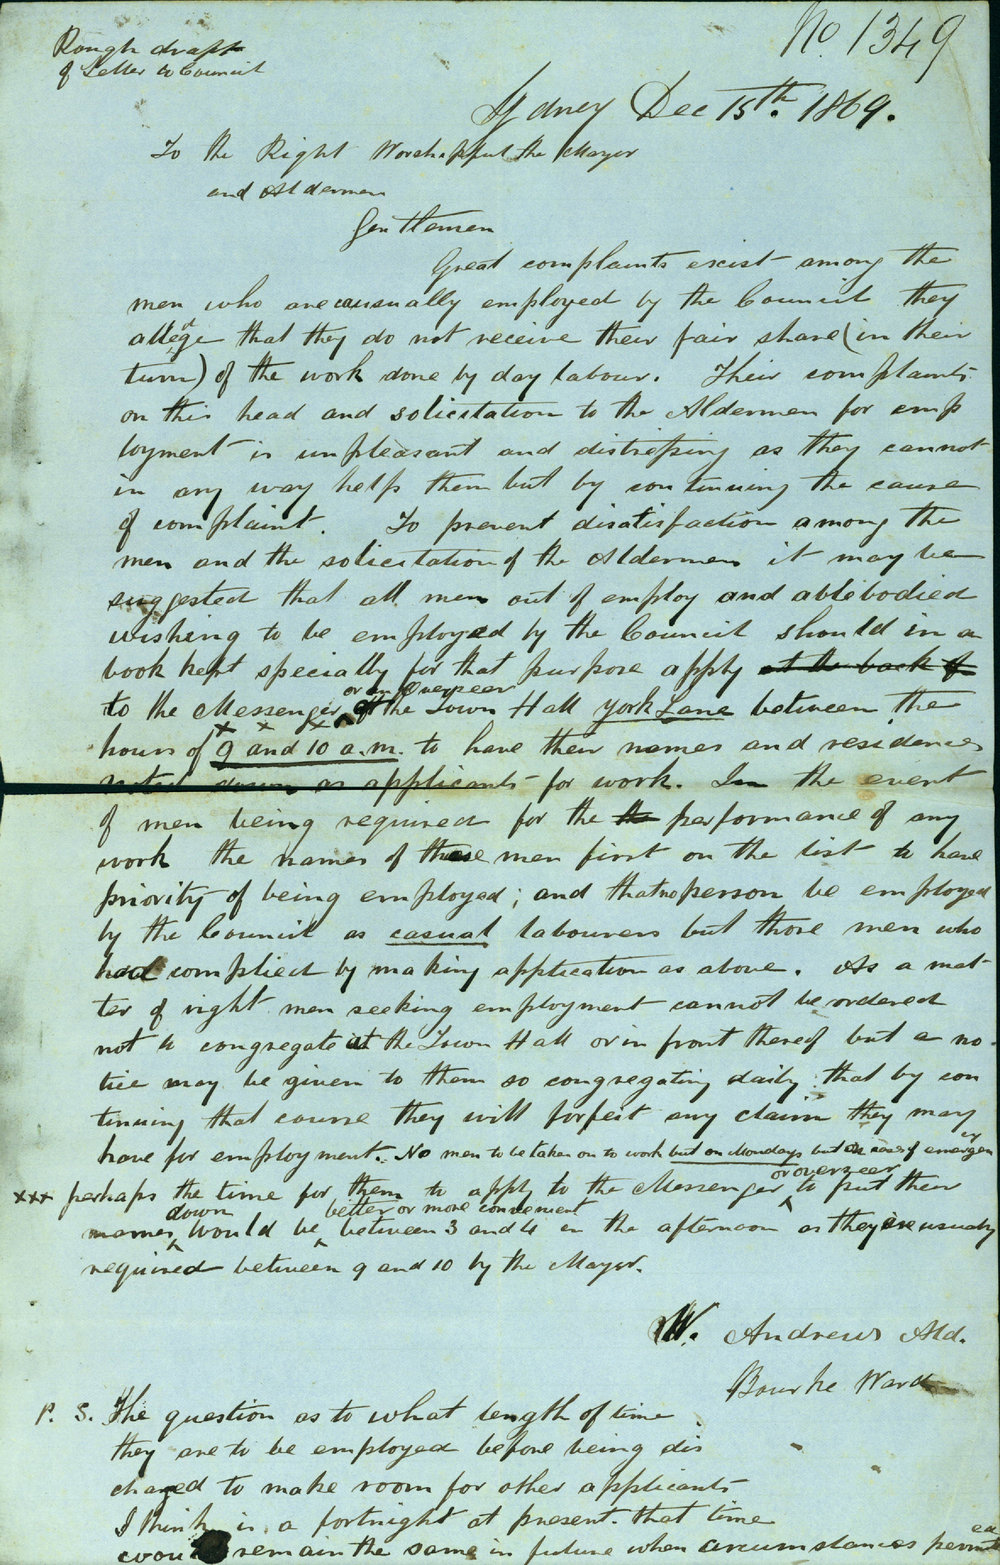 No 1349
Rough draft
of Letter to Council
Sydney Dec 15th. 1869.
To the Right Worshipful the Mayor
and Aldermen
Gentlemen
Great complaints exist among the
men who are causually employed by the Council they
allege that they do not receive their fair share (in their
turn) of the work done by day labour. Their complaints
on this head and solicitation to the Aldermen for emp
loyment is unpleasant and distressing as they cannot
in any way help them but by continuing the cause
of complaint. To prevent disatisfaction among the
men and the solicitation of the Aldermen it may be
suggested that all men out of employ and ablebodied
wishing to be employed by the Council should in a
book kept specially for that purpose apply at the back of
or an Overseer
to the Messenger at the Town Hall York Lane between the
x x x
hours of 9 and 10 a.m. to have their names and residences
noted down as applicants for work. In the event
of men being required for the the performance of any
work the names of these men first on the list to have
priority of being employed; and that no person be employed
by the Council as casual labourers but those men who
had complied by making application as above. As a mat
ter of right men seeking employment cannot be ordered
not to congregate at the Town Hall or in front thereof but a no-
tice may be given to them so congregating daily that by con
tinuing that course they will forfeit any claim they may
have for employment. No men to be taken on to work but on Mondays but in cases of emergen
cy
or overzeer
xxx perhaps the time for them to apply to the Messenger to put their
down better or more convenient
names would be between 3 and 4 in the afternoon as they are usually
required between 9 and 10 by the Mayor.
W. Andrews Ald.
Bourke Ward
P. S. The question as to what length of time
they are to be employed before being dis
charged to make room for other applicants
I think is a fortnight at present. that time
would remain the same in future when circumstances permit
ed